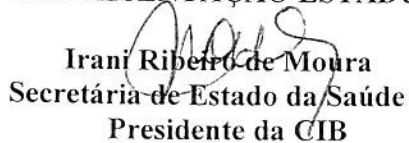 Irani Ribeiro de Moura
Secretária de Estado da Saúde
Presidente da CIB